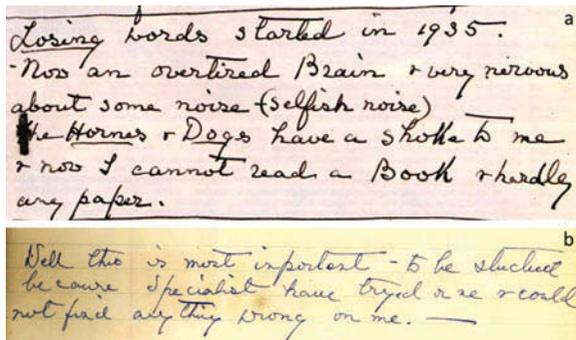 a
Losing words started in 1935.
-Now an overtired Brain & very nervous
about some noise (selfish noise)
the Hornes & Dogs have a shoke to me
& now I cannot read a Book & hardly
any paper.
b
Well this is most important - to be studied
because Specialist have tryed on me & could
not find any thing wrong on me. —